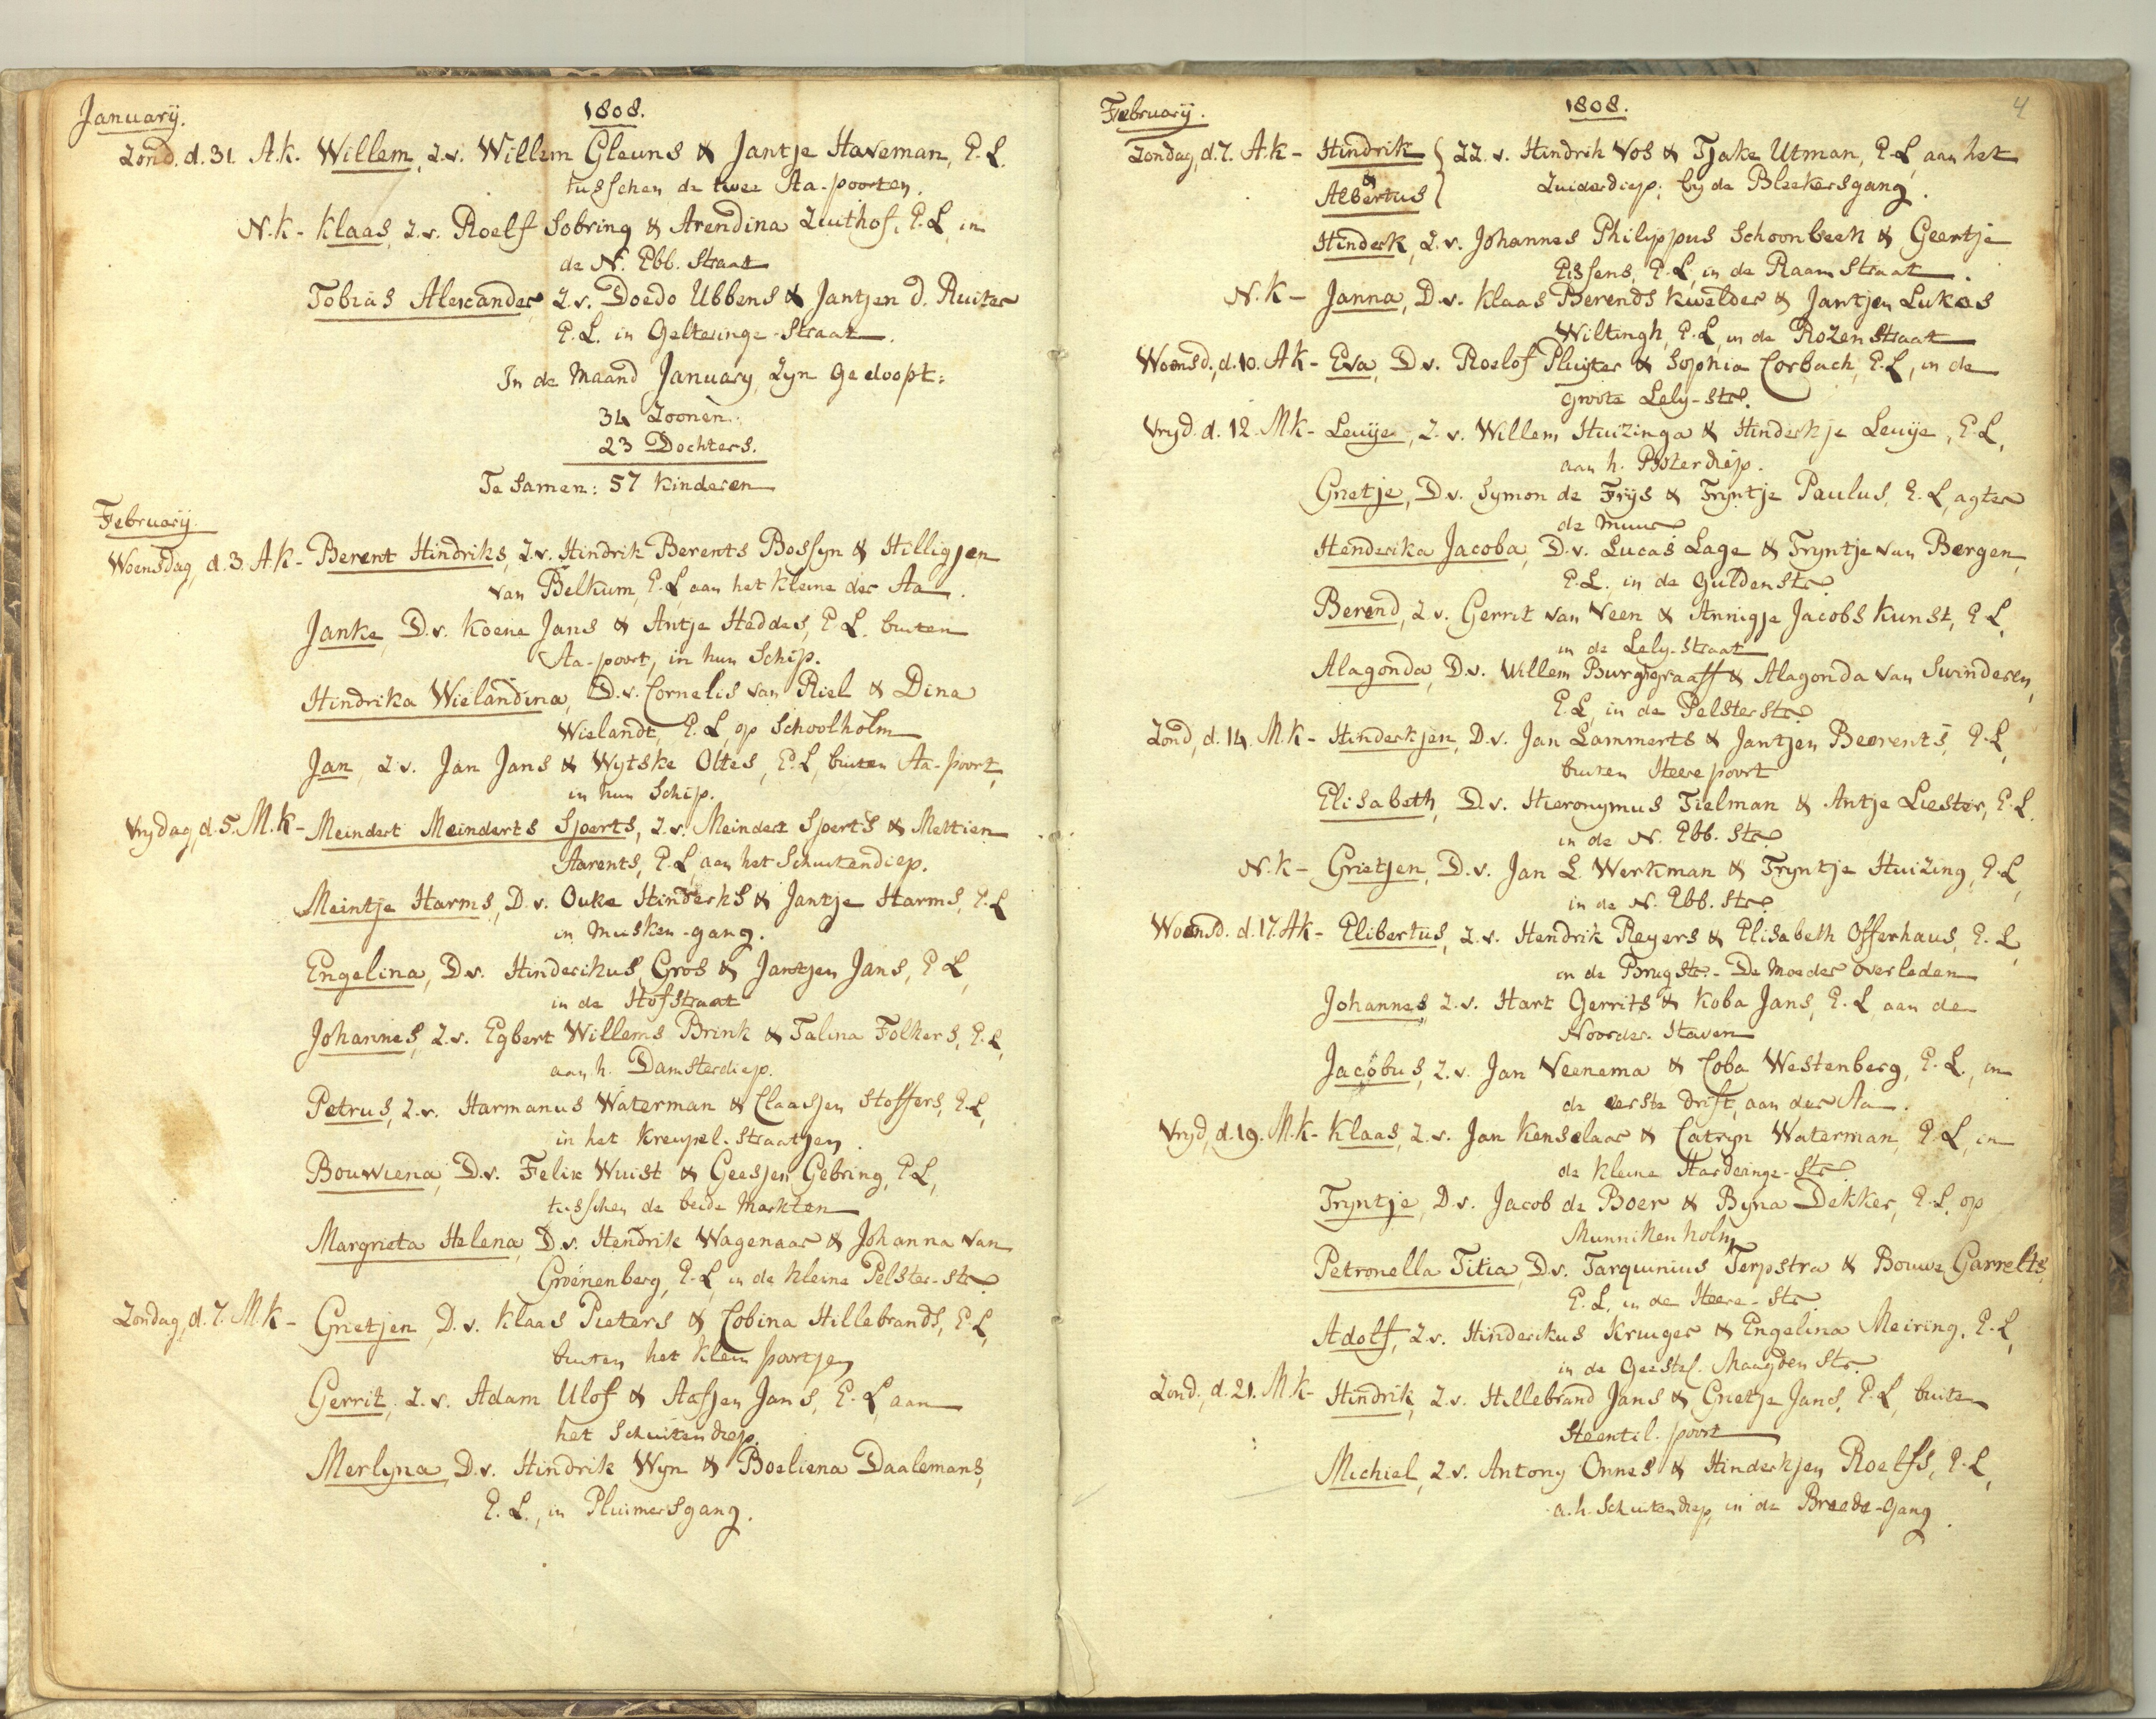 January. 1808.
Zond. d. 31. A.k. Willem, Z.v. Willem Gleuns & Jantje Haveman, E.L.
tusschen de twee Aa-poorten.
N.k - Klaas, Z.v. Roelf Sobring & Arendina Zuithof, E.L, in
de N. Ebb. Straat
Tobias Alexander Z.v. Doedo Ubbens & Jantjen d. Ruiter
E.L. in Gelteringe-Straat.
In de Maand January, zyn gedoopt:
34 Zoonen.
23 Dochters.
Te samen: 57 kinderen
February.
Woensdag, d. 3. A.k - Berent Hindriks, Z.v. Hindrik Berents Bossyn & Hilligjen
van Belkum, E.L, aan het kleine der Aa.
Janke, D.v. Koene Jans & Antje Heddes, E.L. buiten
Aa-poort, in hun Schip.
Hindrika Wielandina, D.v. Cornelis van Riel & Dina
Wielandt, E.L, op Schoolholm
Jan, Z.v. Jan Jans & Wytske Oltes, E.L, buiten Aa-poort,
in hun Schip.
Vrydag, d. 5. M.k - Meindert Meinderts Sjoerts, Z.v. Meindert Sjoerts & Mettien
Aarents, E.L, aan het Schuitendiep.
Meintje Harms, D.v. Ouke Hinderks & Jantje Harms, E.L
in Musken-gang.
Engelina, D.v. Hinderikus Gros & Jantjen Jans, E.L,
in de Hofstraat
Johannes, Z.v. Egbert Willems Brink & Talina Folkers, E.L,
aan h. Damsterdiep.
Petrus, Z.v. Harmanus Waterman & Claasjen Stoffers, E.L,
in het Kreupel-Straatjen.
Bouwiena, D.v. Felix Wuist & Geesjen Gebring, E.L,
tusschen de beide Markten
Margrieta Helena, D.v. Hendrik Wagenaar & Johanna van
Groenenberg, E.L, in de kleine Pelster-str.
Zondag, d. 7. M.k - Grietjen, D.v. Klaas Pieters & Cobina Hillebrands, E.L,
buiten het klein poortjen
Gerrit, Z.v. Adam Ulof & Aafjen Jans, E.L, aan
het Schuitendiep.
Merlyna, D.v. Hindrik Wyn & Boeliena Daalemans,
E.L., in Pluimersgang.
February. 1808. 4
Zondag, d. 7. A.k - Hindrik } ZZ.v. Hindrik Vos & Tjake Utman, E.L, aan het
& Albertus } Zuiderdiep; by de Bleekersgang.
Hinderk, Z.v. Johannes Philyppus Schoonbeek & Geertje
Eissens, E.L, in de Raamstraat.
N.k - Janna, D.v. Klaas Berends Kwelder & Jantjen Lukas
Wiltingh, E.L, in de Rozenstraat
Woensd., d. 10. A.k - Eva, D.v. Roelof Pluyter & Sophia Corbach, E.L, in de
groote Lely-str.
Vryd. d. 12. M.k - Leuije, Z.v. Willem Huizinga & Hinderkje Leuije, E.L,
aan h. Boterdiep.
Grietje, D.v. Symon de Frys & Tryntje Paulus, E.L, agter
de muur
Henderika Jacoba, D.v. Lucas Lage & Tryntje van Bergen,
E.L. in de Guldenstr.
Berend, Z.v. Gerrit van Veen & Annigje Jacobs Kunst, E.L,
in de Lely-Straat
Alagonda, D.v. Willem Burggraaff & Alagonda van Swinderen,
E.L, in de Pelsterstr.
Zond, d. 14. M.k - Hinderkjen, D.v. Jan Lammerts & Jantjen Beerents, E.L,
buiten Heerepoort
Elisabeth, D.v. Hieronymus Tielman & Antje Liester, E.L.
in de N. Ebb. Str.
N.k - Grietjen, D.v. Jan L. Werkman & Tryntje Huizing, E.L,
in de N. Ebb. Str.
Woensd. d. 17. A.k - Elibertus, Z.v. Hendrik Reyers & Elisabeth Offerhaus, E.L,
in de Brugstr. - De Moeder overleden
Johannes, Z.v. Hart Gerrits & Koba Jans, E.L, aan de
Noorder-Haven
Jacobus, Z.v. Jan Veenema & Coba Westenberg, E.L., in
de eerste drift, aan der Aa.
Vryd, d. 19. M.k - Klaas, Z.v. Jan Kenselaar & Catryn Waterman, E.L, in
de kleine Harderinge-Str.
Tryntje, D.v. Jacob de Boer & Byna Dekker, E.L, op
Munnikenholm
Petronella Titia, D.v. Tarquinius Terpstra & Bouwe Garrelts,
E.L, in de Heere-Str.
Adolf, Z.v. Hinderikus Kruiger & Engelina Meiring, E.L,
in de Geestel. Maagden Str.
Zond, d. 21. M.k - Hindrik, Z.v. Hillebrand Jans & Grietje Jans, E.L, buiten
Steentil-poort
Michiel, Z.v. Antony Onnes & Hinderkjen Roelfs, E.L,
a.h. Schuitendiep, in de Breede-Gang.